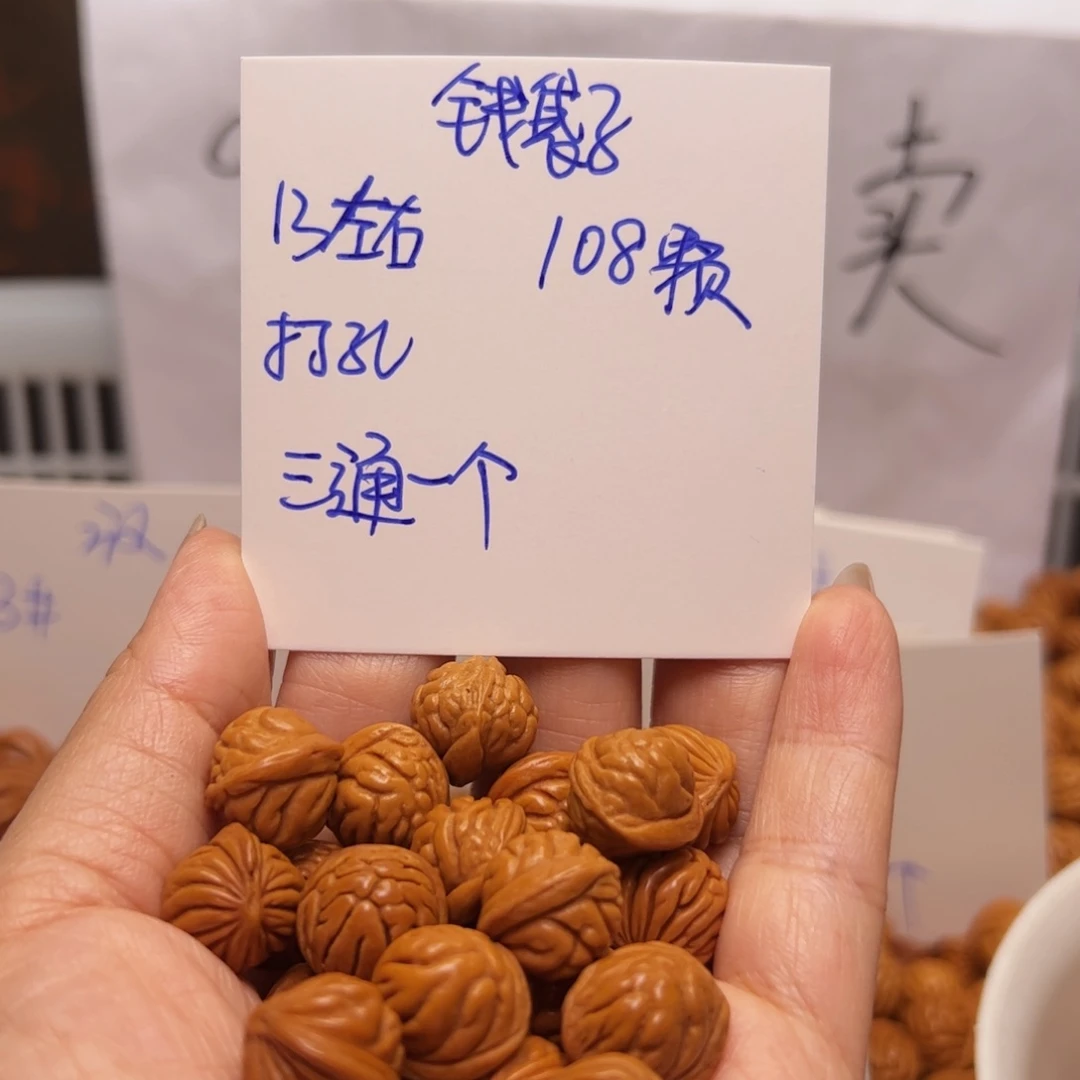 钱袋子
13左右 108颗
打孔
三通一个
卖
3#